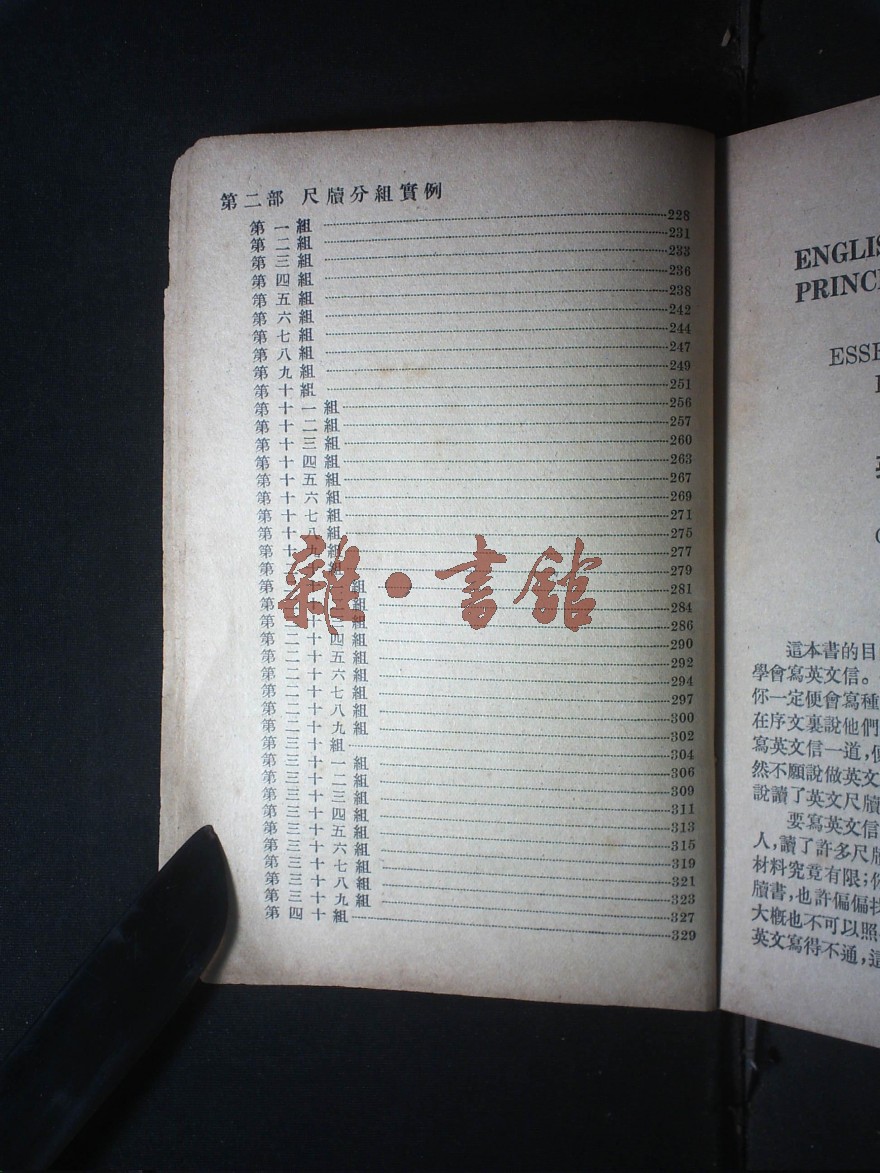 第二部 尺牘分組實例
第一組 228
第二組 231
第三組 233
第四組 236
第五組 238
第六組 242
第七組 244
第八組 247
第九組 249
第十組 251
第十一組 256
第十二組 257
第十三組 260
第十四組 263
第十五組 267
第十六組 269
第十七組 271
第十八組 275
第十九組 277
第二十組 279
第二十一組 281
第二十二組 284
第二十三組 286
第二十四組 290
第二十五組 292
第二十六組 294
第二十七組 297
第二十八組 300
第二十九組 302
第三十組 304
第三十一組 306
第三十二組 309
第三十三組 311
第三十四組 313
第三十五組 315
第三十六組 319
第三十七組 321
第三十八組 323
第三十九組 327
第四十組 329
雜·書館
ENGLIS
PRINC
ESSE
這本書的目
學會寫英文信。
你一定便會寫種
在序文裏說他們
寫英文信一道,
然不願說做英文
說讀了英文尺牘
要寫英文信
人,讀了許多尺牘
材料究竟有限;
牘書,也許偏偏找
大概也不可以照
英文寫得不通,這